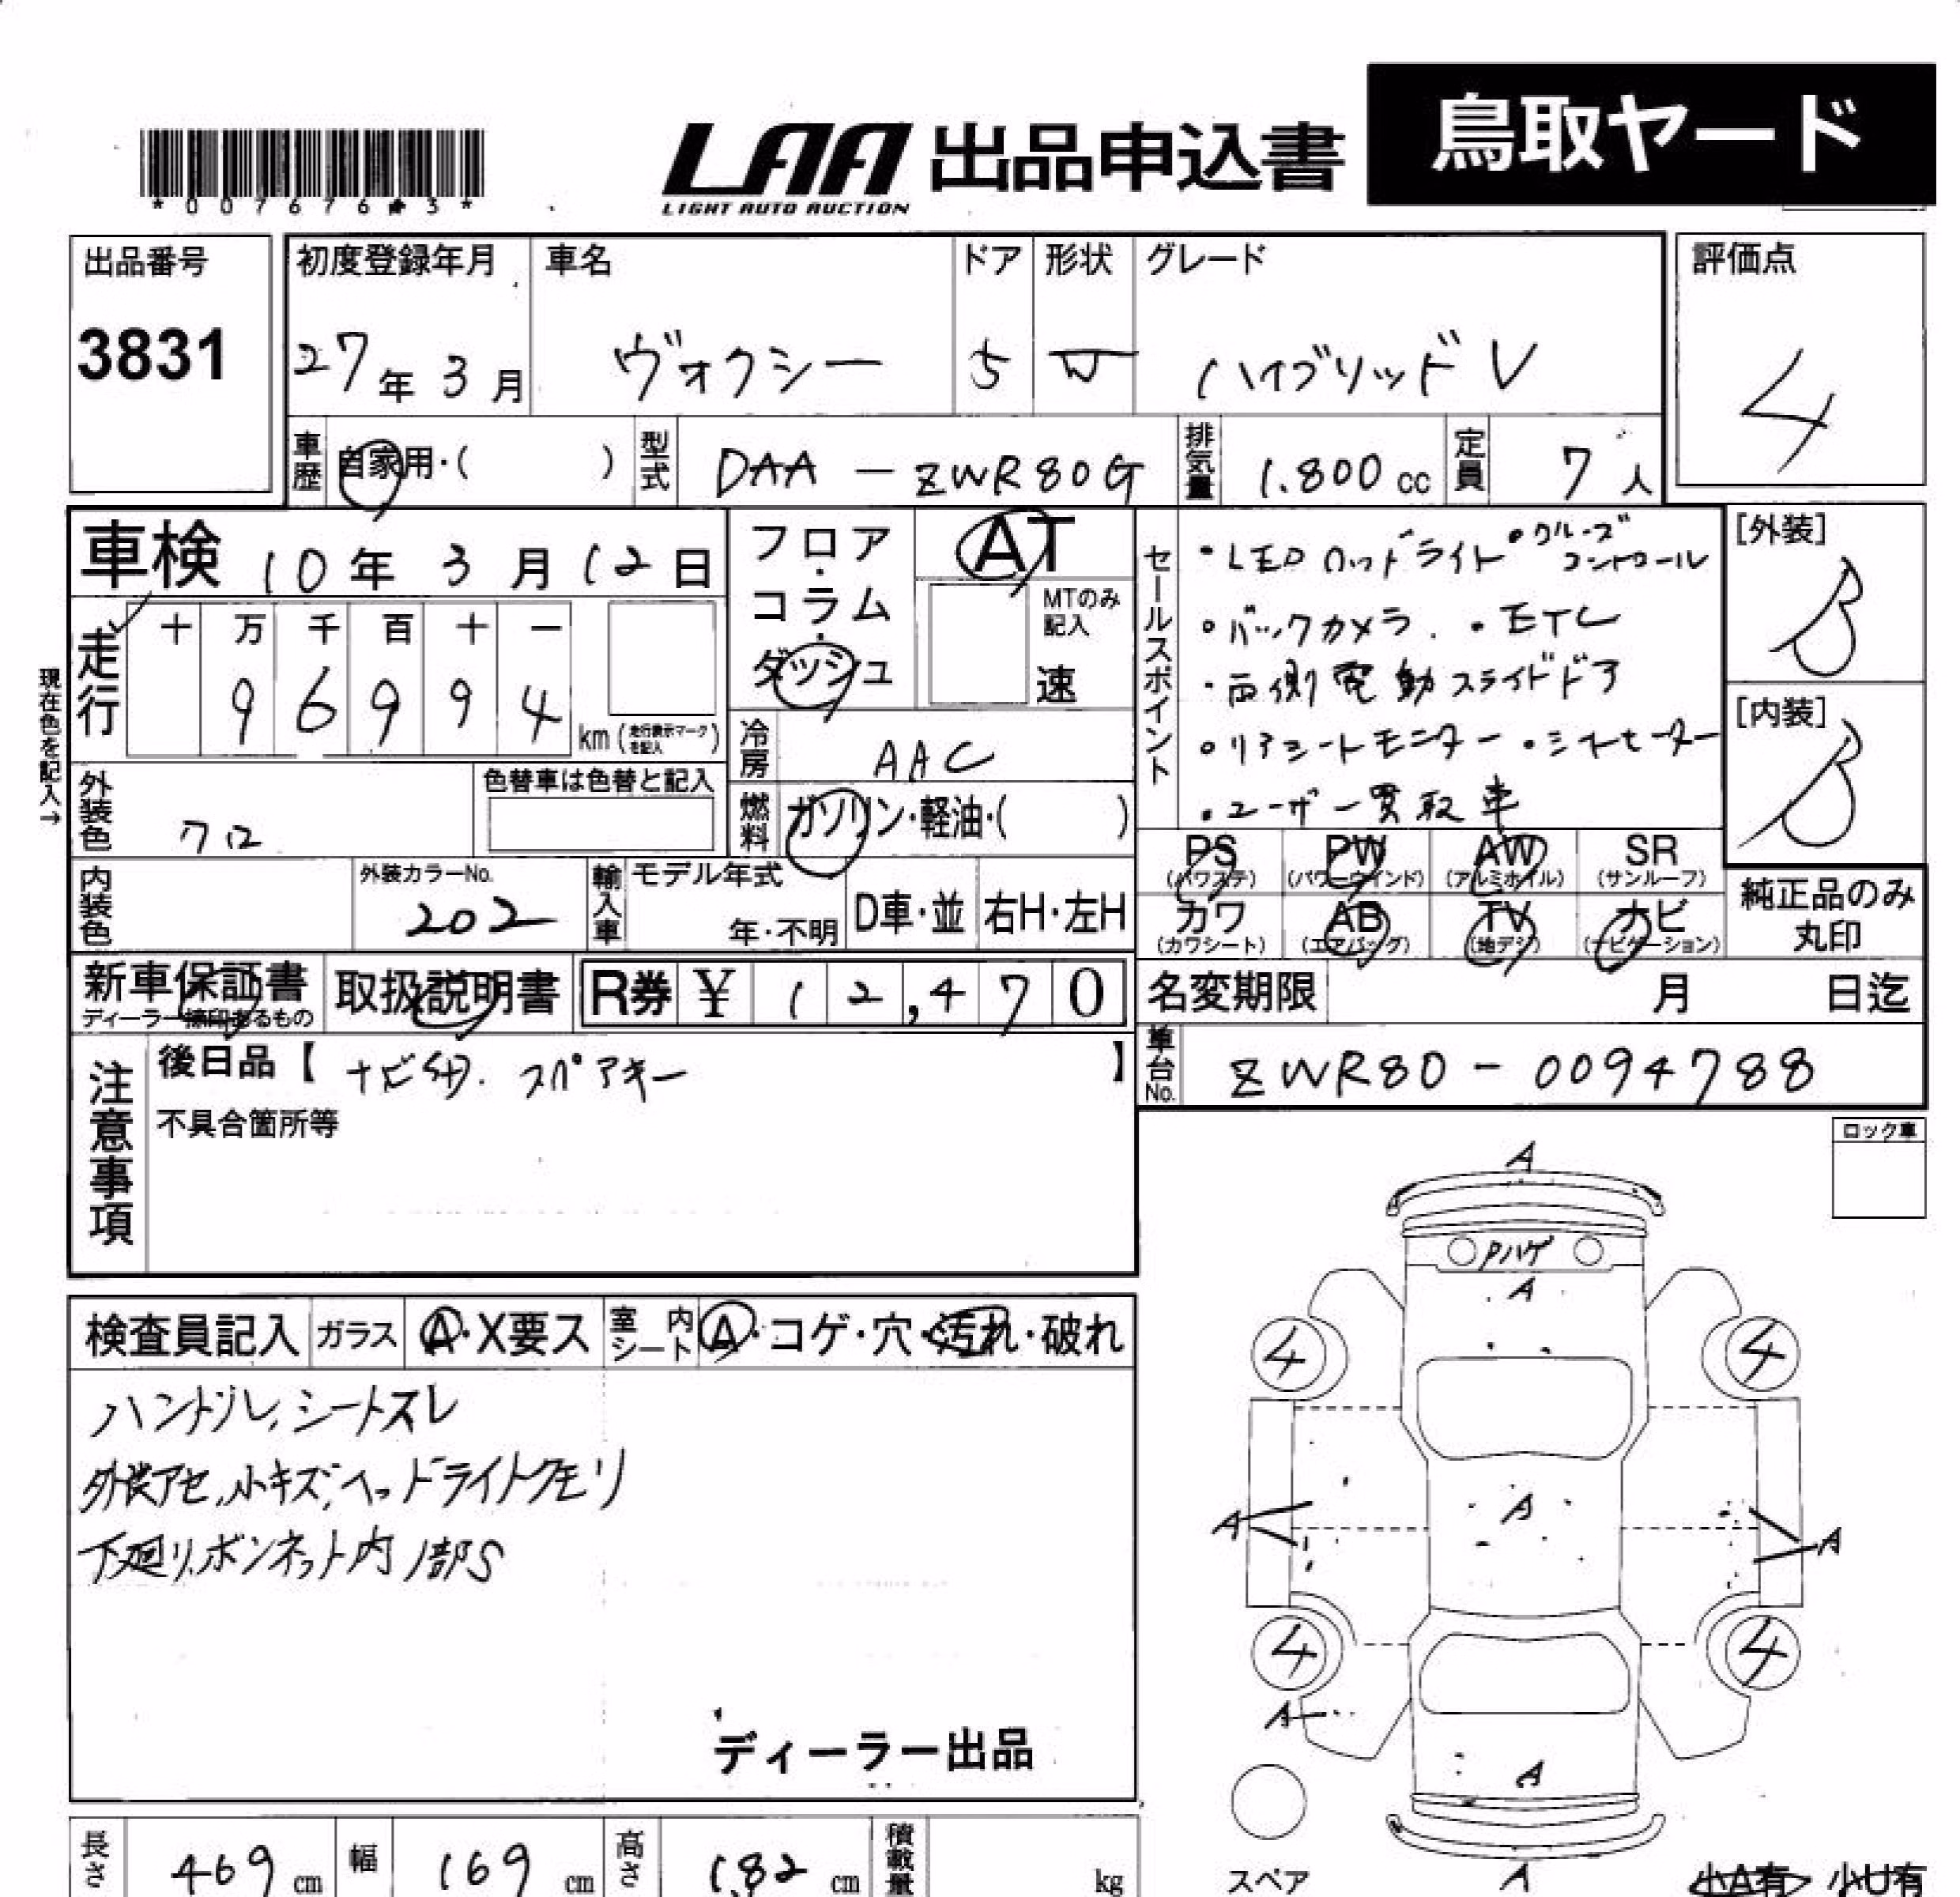 鳥取ヤード
LAA 出品申込書
LIGHT AUTO AUCTION
出品番号
3831
初度登録年月
27年 3月
車名
ヴォクシー
ドア
5
形状
W
グレード
ハイブリッド V
評価点
4
車歴
自家用・( )
型式
DAA - ZWR80G
排気量
1.800 cc
定員
7人
車検 10年 3月 12日
フロア・コラム・ダッシュ
AT
MTのみ記入
速
セールスポイント
・LEDヘッドライト ・クルーズコントロール
・バックカメラ. ・ETC
・両側電動スライドドア
・リアシートモニター ・シートヒーター
・ユーザー買取車
[外装]
B
[内装]
B
現在色を記入→
走行
十 万 千 百 十 一
9 6 9 9 4
km (走行表示マークを記入)
冷房
AAC
燃料
ガソリン・軽油・( )
外装色
クロ
色替車は色替と記入
内装色
外装カラーNo.
202
輸入車
モデル年式
年・不明
D車・並
右H・左H
PS
(パワステ)
PW
(パワーウインド)
AW
(アルミホイル)
SR
(サンルーフ)
カワ
(カワシート)
AB
(エアバッグ)
TV
(地デジ)
ナビ
(ナビゲーション)
純正品のみ
丸印
新車保証書
ディーラー捺印あるもの
取扱説明書
R券 ¥ 12,470
名変期限 月 日迄
車台No.
ZWR80 - 0094788
注意事項
後日品【 スペアキー 】
不具合箇所等
ロック車
検査員記入
ガラス
A・X要ス
室内シート
A・コゲ・穴・汚れ・破れ
ハンドル,シートスレ
外装アセ,小キズ,ヘッドライトクモリ
下廻り,ボンネット内1部S
ディーラー出品
A
Pハゲ
A
4
4
A
A
A
4
4
A
A
スペア
A
小A有 小U有
長さ
469 cm
幅
169 cm
高さ
182 cm
積載量
kg